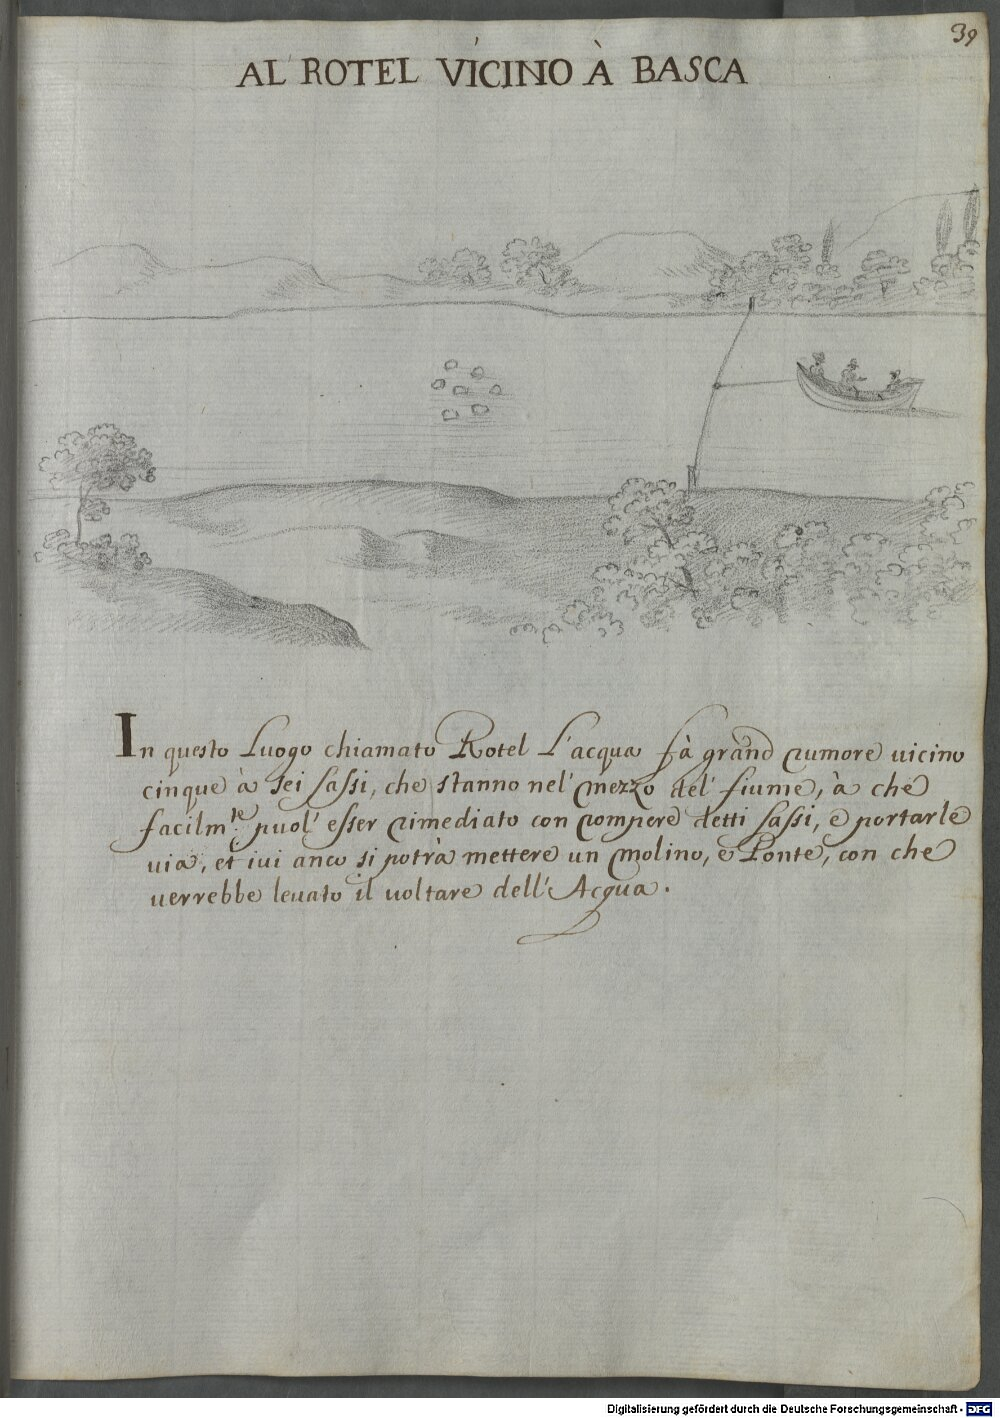 39
AL ROTEL VICINO À BASCA
In questo Luogo chiamato Rotel L'acqua fà grand rumore uicino
cinque à sei sassi, che stanno nel' mezzo del' fiume, à che
facilm.te puol' esser rimediato con rompere detti sassi, e portarle
uia, et iui anco si potrà mettere un molino, e Ponte, con che
uerrebbe leuato il uoltare dell' Acqua.
Digitalisierung gefördert durch die Deutsche Forschungsgemeinschaft - DFG